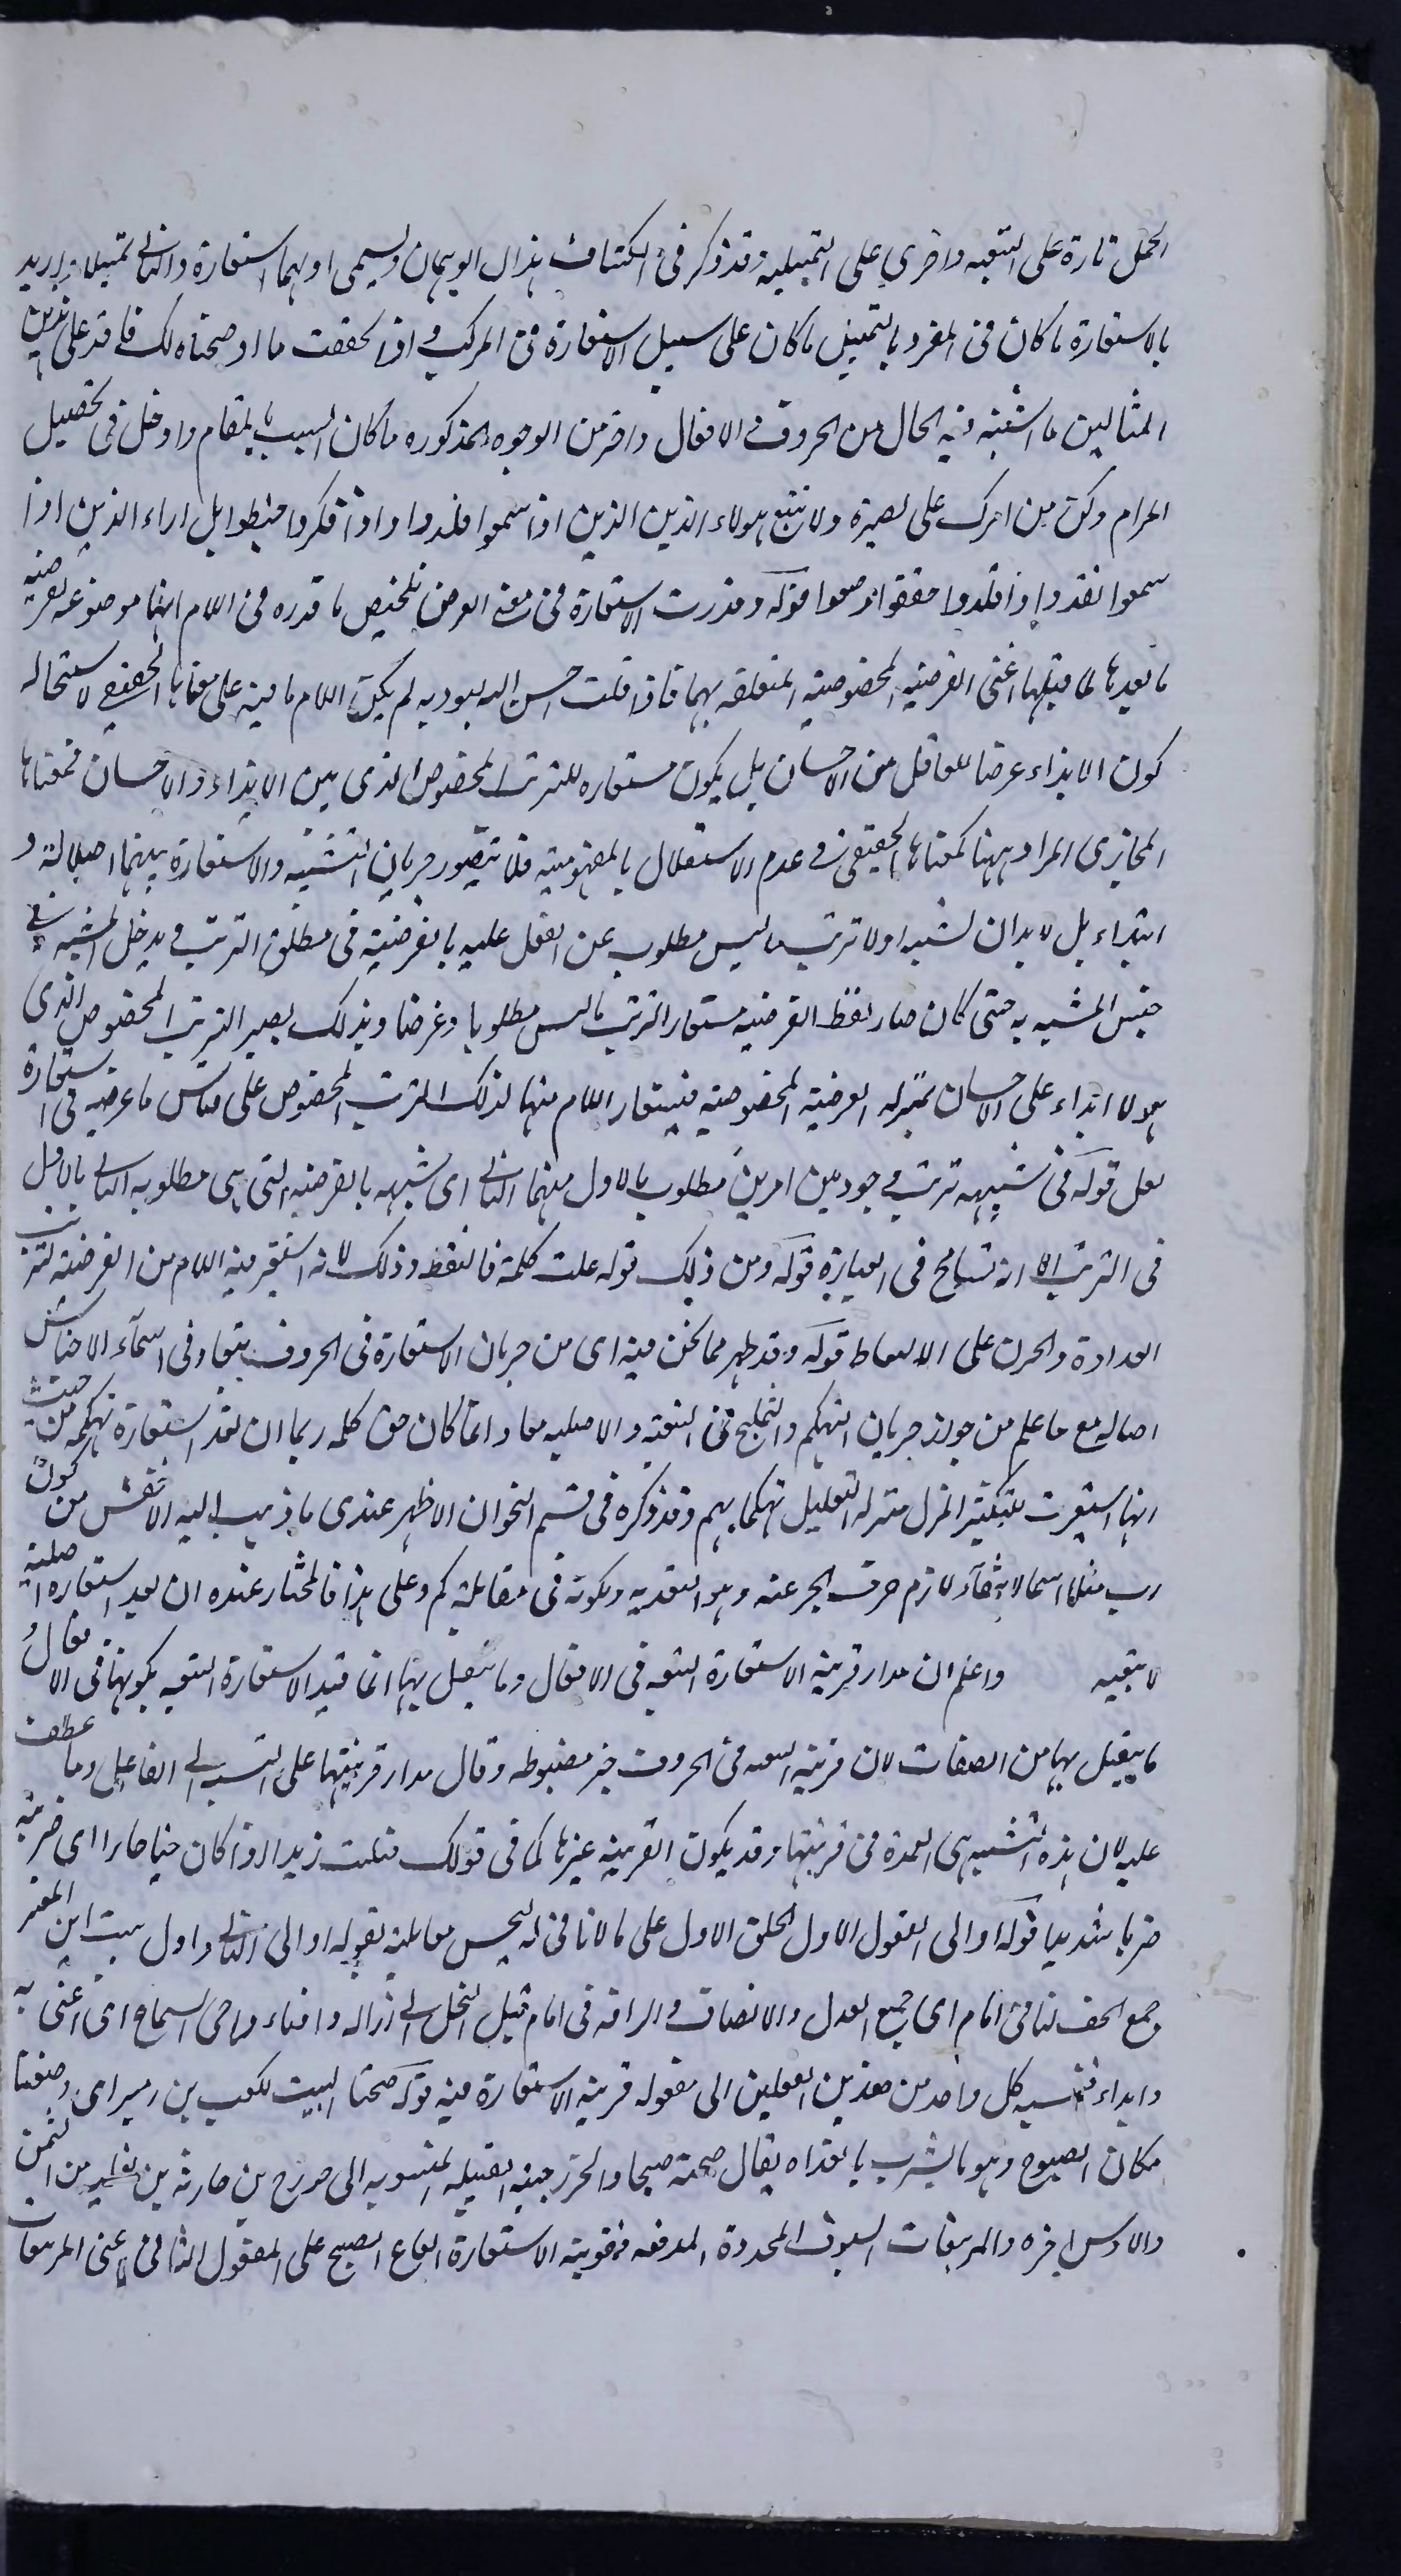 الحمل تارة على التبعيه واخرى على التمثيلية وقد ذكر فى الكشاف هذان الوجهان ويسمى اولهما استعارة والثانى تمثيلا يريد
بالاستعارة ما كان فى المفرد بالتمثيل ما كان على سبيل الاستعارة فى المركب و اذا تحققت ما اوضحناه لك فاقد على هذين
المثالين ما اشتبه فيه الحال من الحروف الافعال واختر من الوجوه المذكوره ما كان انسب بالمقام وادخل فى تحصيل
المرام وكن من امرك على بصيرة ولا تتبع هولاء الذين الذين اذا سمعوا قلدوا واذا فكروا بل اراء الذين اذا
سمعوا نقدوا واذا قلدوا حققوا قوله وقدرت الاستعارة فى معنى الغرض تلخيص ما قدره فى اللام انها موضوعه لغرضيه
ما بعدها لما قبلها اعنى الغرضيه المخصوصية المتعلقه بهما فاذا قلت احسن اليه ليوذيه لم يكن اللام فيه على معناها الحقيقى لاستحاله
كون الايذاء غرضا للعاقل من الاحسان بل يكون مستعاره للترتب المخصوص الذى بين الايذاء والاحسان فمعناها
المجازى المراد ههنا كمعناها الحقيقى فى عدم الاستقلال بالمفهوميه فلا يتصور جريان التشبيه والاستعارة بينهما اصالة و
ابتداء بل لابد ان يشبه اولا ترتب ما ليس مطلوب عن الفعل عليه بالغرضية فى مطلق الترتب و يدخل المشبه فى
جنس المشبه به حتى كان صار لفظ الغرضيه مستعار الترتب ما ليس مطلوبا وغرضا وبذلك يصير الترتب المخصوص الذى
هو للايذاء على الاحسان بمنزله الغرضية المخصوصية فيستعار اللام منها لذلك الترتب المخصوص على قياس ما عرفته فى استعارة
لعل قوله فى شبيهه ترتب وجود بين امرين مطلوب بالاول منهما الثانى اى شبهه بالغرضيه التى هى مطلوبه الثانى بالاول
فى الترتب الا انه تسامح فى العبارة قوله ومن ذلك قوله علت كلمة فالتقط وذلك لانه استعير فيه اللام من الغرضية لترتب
العداوة والحزن على الالتقاط قوله وقد ظهر مما نحن فيه اى من جريان الاستعارة فى الحروف تبعا وفى اسماء الاجناس
اصاله مع ما علم من جواز جريان التهكم والتمليح فى التبعية والاصليه معا وانما كان حق كلمه ربما ان تعد استعارة تهكمه من حيث
انها استعيرت للتكثير المنزل منزله التقليل تهكما بهم وقد ذكره فى قسم النحو ان الاظهر عندى ما ذهب اليه الاخفش من كون
رب مثلها اسما لانتفاء لازم حرف الجر عنه وهو التعديه ولكونه فى مقابلة كم وعلى هذا فالمختار عنده ان يعد استعاره اصلية
لا تبعيه واعلم ان مدار قرينه الاستعارة التبعيه فى الافعال وما يتصل بها انما قيد الاستعارة التبعيه بكونها فى الافعال و
ما يتصل بها من الصفات لان قرينة التبعيه فى الحروف غير مضبوطه وقال مدار قرينتها على النسبة الى الفاعل وما عطف
عليه لان هذه النسبه هى العمدة فى قرينتها وقد يكون القرينه غيرها كما فى قولك قتلت زيدا واذا كان حيا حاضرا اى ضربته
ضربا شديدا قوله او الى المفعول الاول اطلق الاول على ما لا ثانى له ليحسن مقابلته بقوله او الى الثانى واول بيت ابن المعتز
جمع الحق لنا فى امام اى جميع العدل والانصاف والرافه فى امام قتل البخل اى ازاله وافناه واحى السماح اى اغنى به
وابداه فنسبه كل واحد من هذين الفعلين الى مفعوله قرينه الاستعارة فيه قوله صبحنا البيت لكعب بن زهير اى وضعنا
مكان الصبوح وهو ما يشرب بالغداه يقال صبحته صبحا والخزرجيه القبيله المنسوبه الى خزرج بن حارثه بن ثعلبه من اليمن
والاوس اخوه والمرهفات السيوف المحددة المدققه فقرينة الاستعارة ايقاع الصبح على المفعول الثانى اعنى المرهفات